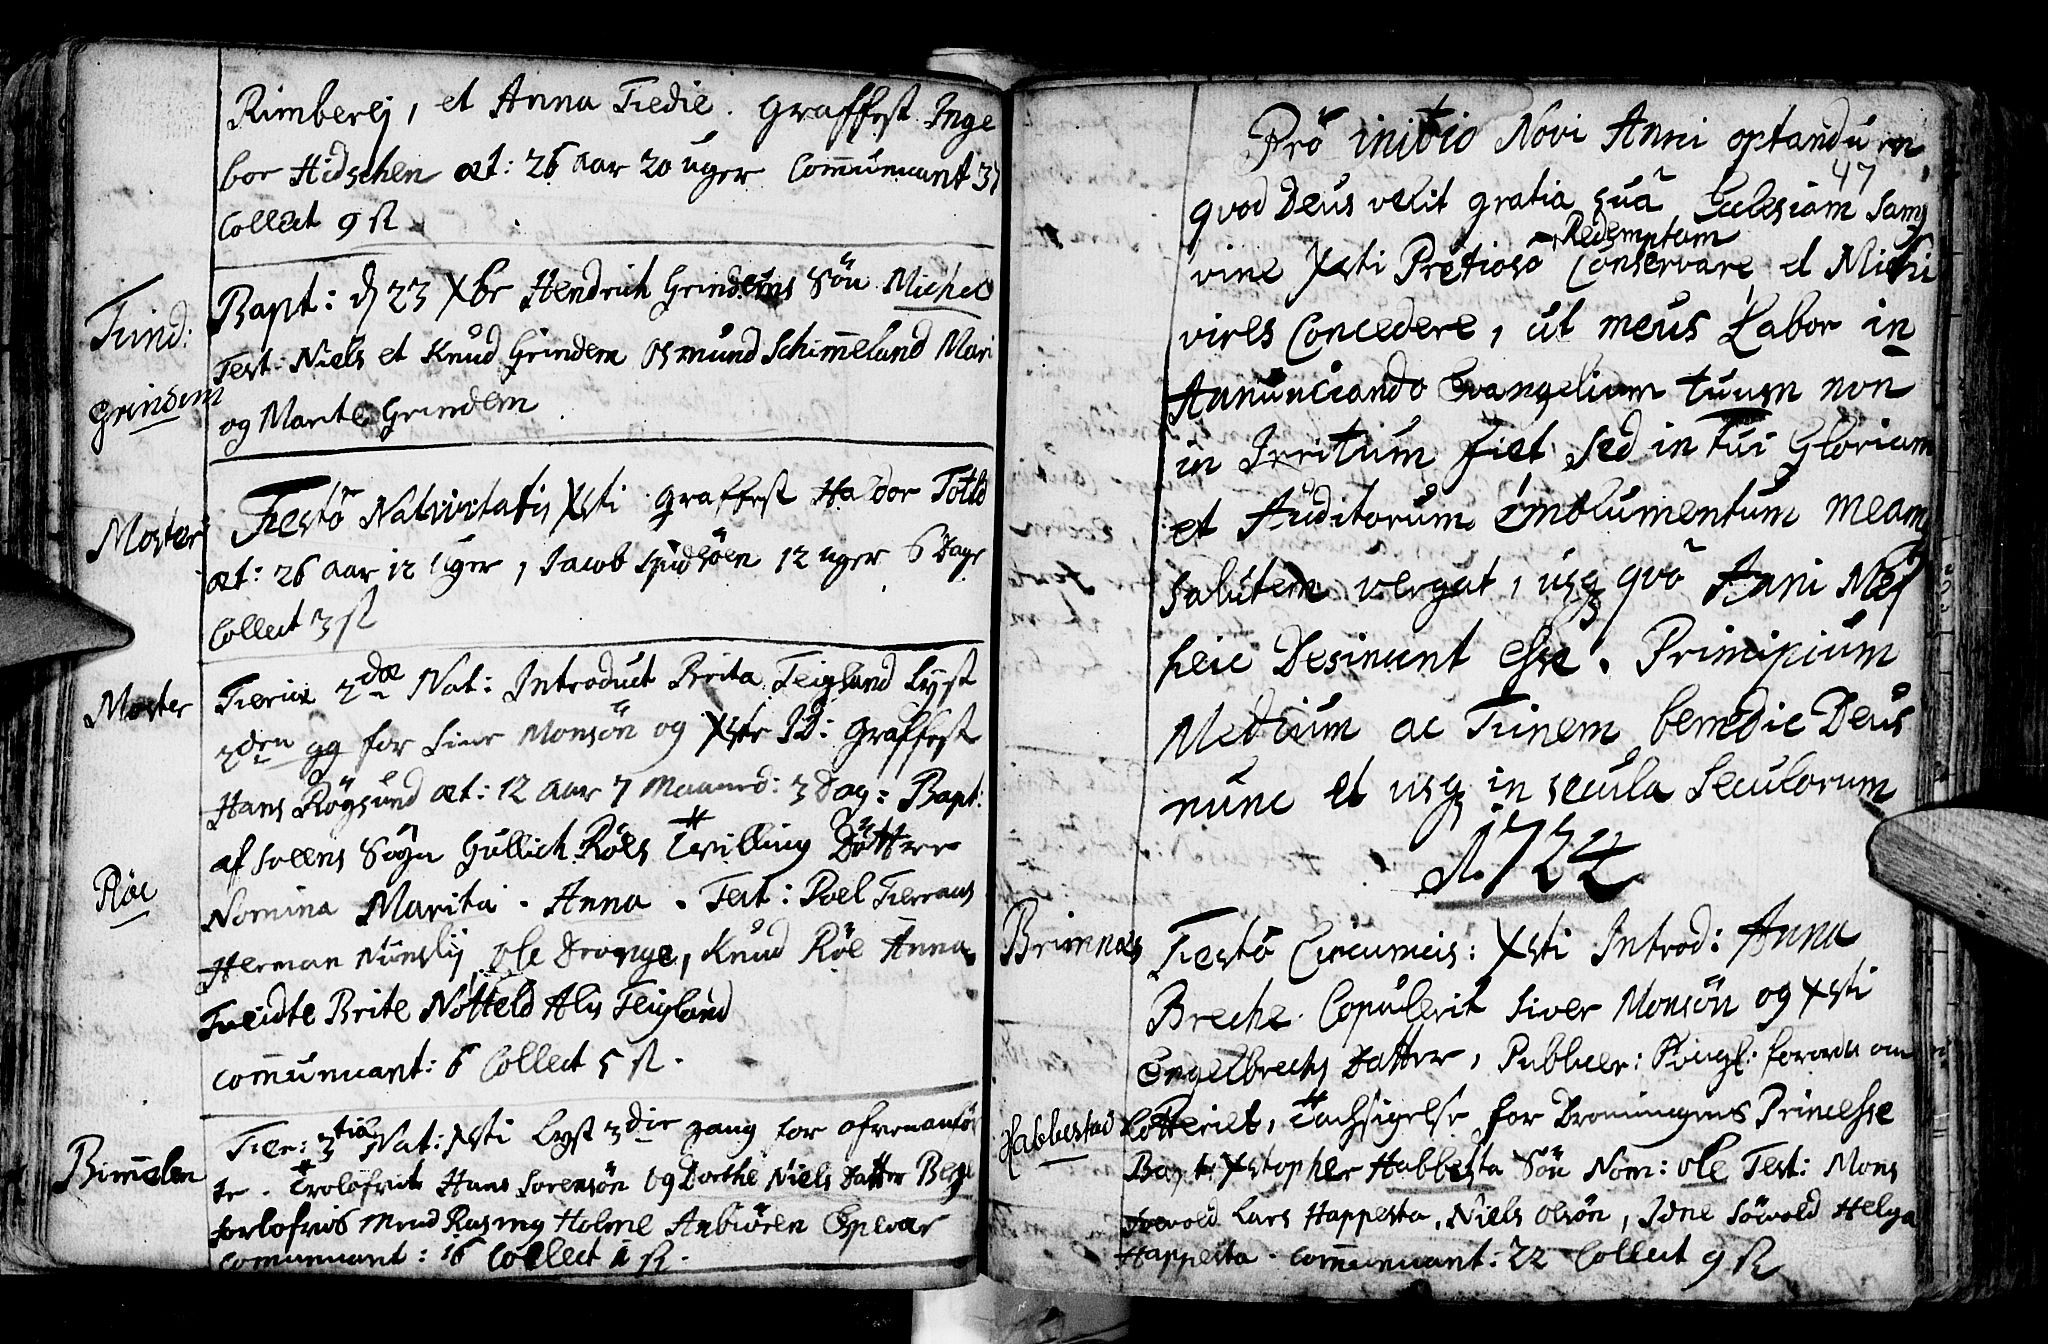 Rimberej, et Anna Tiedie. Graffest Inge
bor Hidschen æt: 26 Aar 20 uger Com̄unicant 37
Collect 9 ß
Find:
Grindem
Bapt: d 23 Xbr Hendrich Grindems Sön Michel
Test: Niels et Knud Grindem Osmund Schim̄eland Mari
og Marite Grindem
Moster
Festo Nativitatis Xsti Graffest Haldor Totld
æt: 26 Aar 12 Uger, Jacob 12 uger 6 Dage
Collect 3 ß
Moster
Feriæ 2dæ Nat: Introduct Brita Teigland Lyst
2den gg for Siur Monsön og Xste ID: Graffest
Hans Rögsund æt: 12 Aar 7 Maaned: 3 Dag: Bapt:
Röe
af Soeens Sogn Gullich Röes Tvilling Dötter
Nomina Marita. Anna. Test: Poel
Herman ole Drange, Knud Röe Anna
Tveidte Brite Nötteld Alis Teigland
Com̄unicant: 6 Collect 5 ß.
Bim̄elen
Fier: 3tiæ Nat: Xsti Lyst 3die gang for ofvenanfö
te. Trolofvit Hans Sorensön og Dorthe Niels Datter Beggl
forlofvis Mend Rasmg Holme Anbiören Espevær
Com̄unicant: 16 Collect 1 ß.
Pro initio Novi Anni optandum,
47
qvod Deus velit gratia sua Ecclesiam Sang
Redemptam
vine Xsti Pretioso Conservare, et Michi
vires Concedere, ut meus Labor in
Annunciando Evangelium tuum non
in Irritum fiet Sed in Tui Gloriam
et Auditorum emolumentum meam
Salutem vergat, usq quo Anni Mej
heic Desinant esse. Principium
Medium ac Finem benedic Deus
nunc et usq in secula Seculorum
A. 1724
Brimnæs
Festo Circumcis: Xsti Introd: Anna
Breche. Copulerit Siver Monsön og Xsti
Engelbrechs Datter, Publicer: Kongl. forordn om
Habbestad
Lotteriet, Tachsigelse for Dronningens Princesse
Bapt: Xstopher Habbesta Sön Nom: ole Test: Mons
Sævold Lars Happesta, Niels Olsön, Idne Söwold Helga
Happesta. Com̄unicant: 22 Collect 9 ß